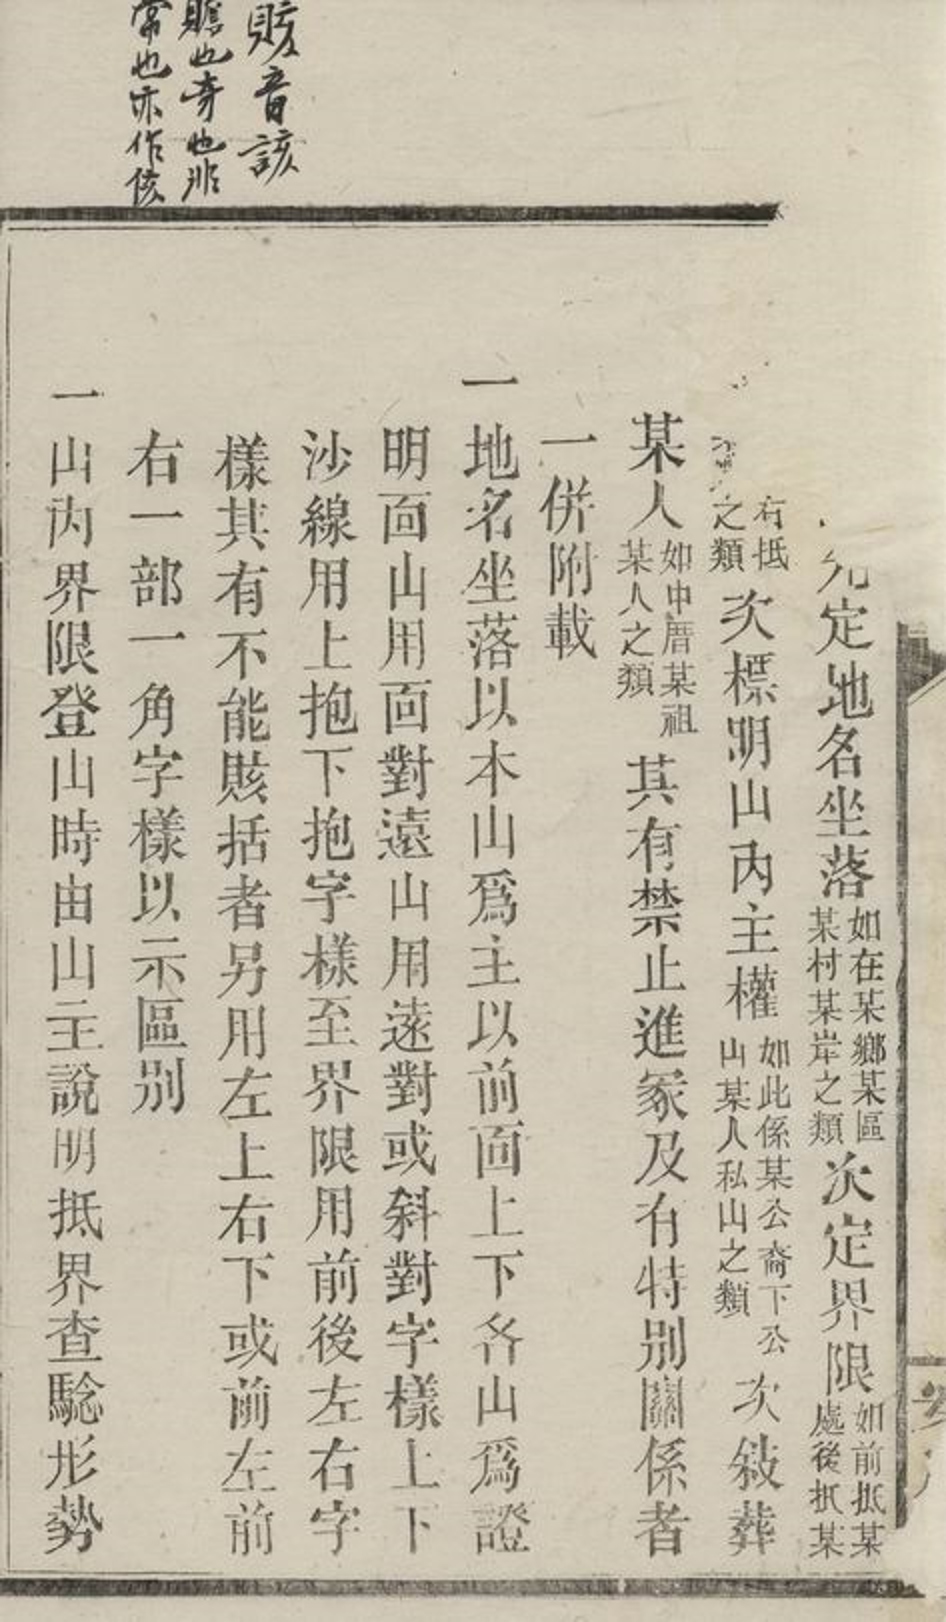 賅音該
贍也奇也非
常也亦作侅
先定地名坐落如在某鄉某區某村某岸之類次定界限如前抵某處後抵某
右抵之類次標明山內主權如此係某公裔下公山某人私山之類次敍葬
某人如中厝某祖某人之類其有禁止進冢及有特別關係者
一併附載
一地名坐落以本山爲主以前面上下各山爲證
明面山用面對遠山用遠對或斜對字樣上下
沙線用上抱下抱字樣至界限用前後左右字
樣其有不能賅括者另用左上右下或前左前
右一部一角字樣以示區別
一山內界限登山時由山主說明抵界查騐形勢